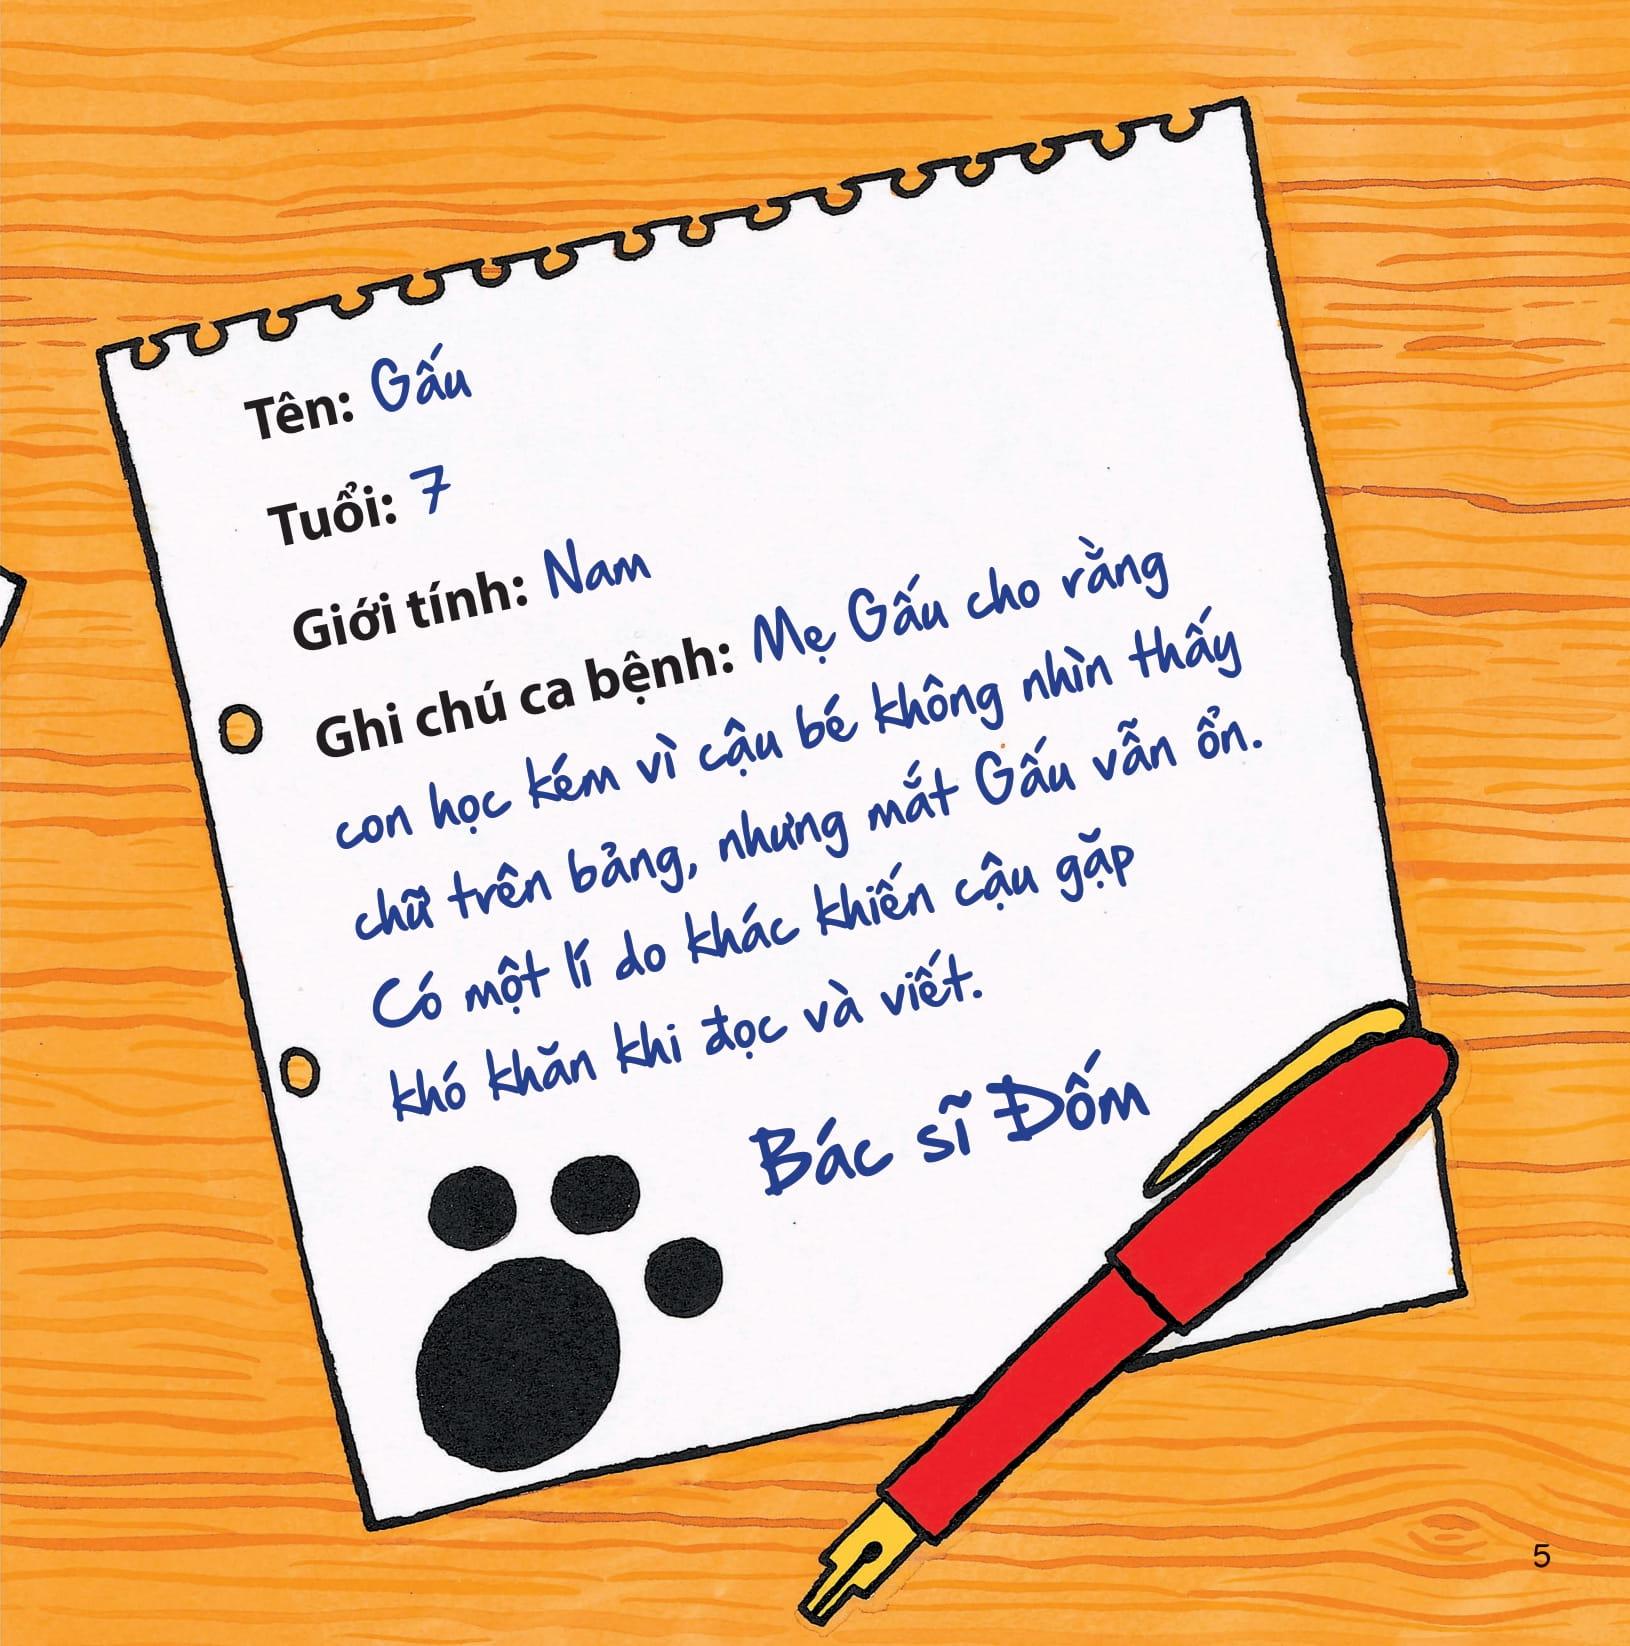 Tên: Gấu
Tuổi: 7
Giới tính: Nam
Ghi chú ca bệnh: Mẹ Gấu cho rằng
con học kém vì cậu bé không nhìn thấy
chữ trên bảng, nhưng mắt Gấu vẫn ổn.
Có một lí do khác khiến cậu gặp
khó khăn khi đọc và viết.
Bác sĩ Đốm
5